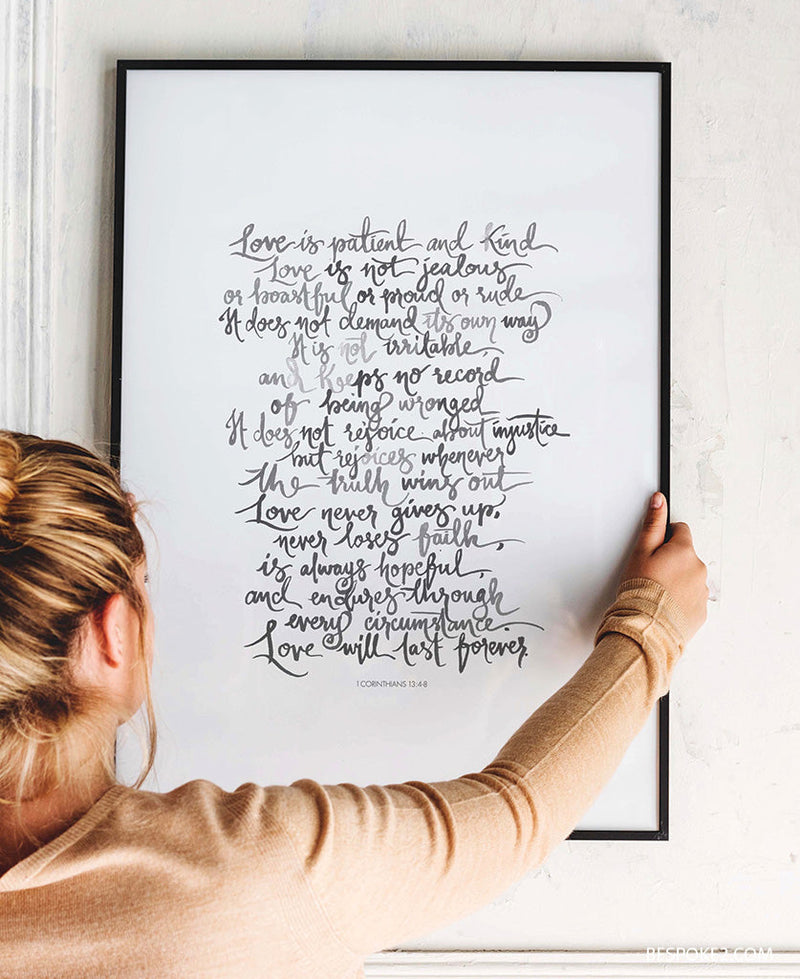 Love is patient and kind
Love is not jealous
or boastful or proud or rude
It does not demand its own way
It is not irritable,
and keeps no record
of being wronged
It does not rejoice about injustice
but rejoices whenever
the truth wins out
Love never gives up,
never loses faith,
is always hopeful,
and endures through
every circumstance
Love will last forever.
1 CORINTHIANS 13:4-8